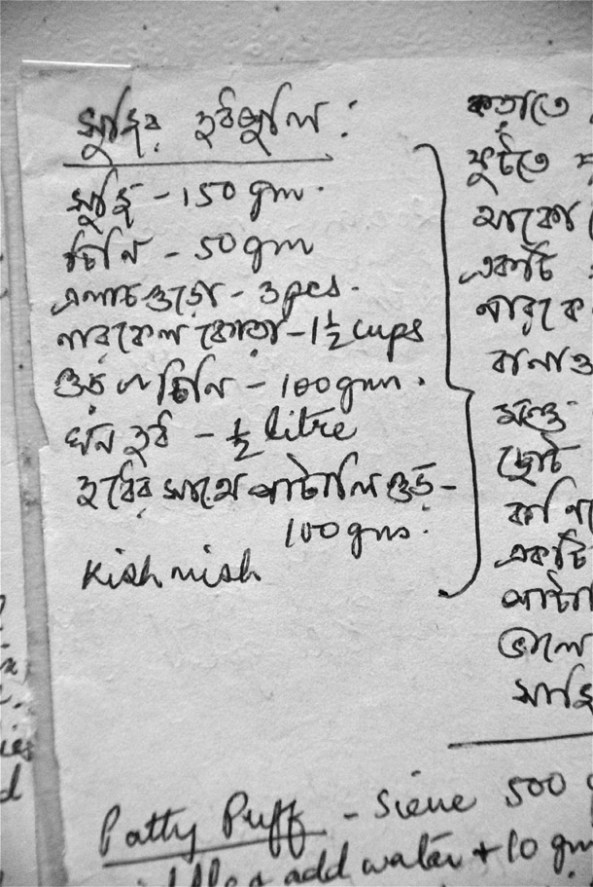 সুজির দুধপুলি :
সুজি - 150 gm.
চিনি - 50 gm
এলাচ গুড়ো - 3 pcs.
নারকেল কোরা - 1 1/2 cups
গুড় বা চিনি - 100 gms.
ঘন দুধ - 1/2 litre
দুধের সাথে পাটালি গুড় -
100 gms.
Kishmish
কড়াতে
ফুটতে
একটি
নারকে
বানাও
ছোট
একটি
Patty Puff - Sieve 500 g
add water + 10 gm